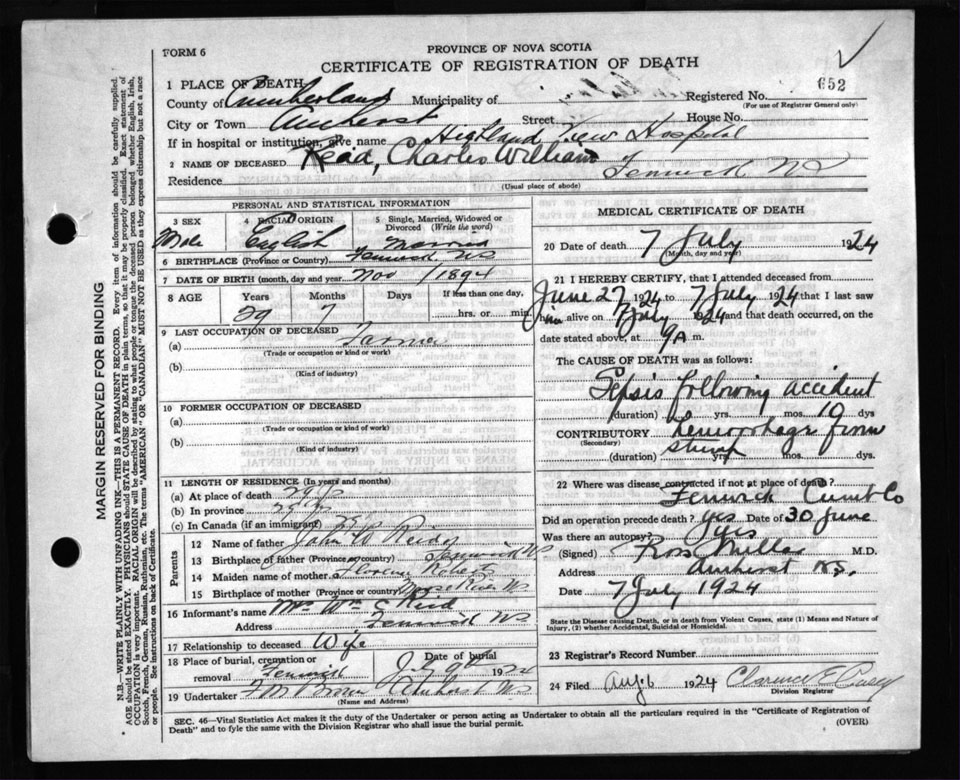 FORM 6
PROVINCE OF NOVA SCOTIA
CERTIFICATE OF REGISTRATION OF DEATH
1 PLACE OF DEATH
Registered No. 652
County of Cumberland Municipality of
(For use of Registrar General only)
City or Town Amherst Street House No.
If in hospital or institution, give name Highland View Hospital
2 NAME OF DECEASED Read, Charles William
Residence Fenwick NS
(Usual place of abode)
PERSONAL AND STATISTICAL INFORMATION
3 SEX 4 RACIAL ORIGIN 5 Single, Married, Widowed or Divorced (Write the word)
Male English Married
6 BIRTHPLACE (Province or Country) Fenwick, NS
7 DATE OF BIRTH (month, day and year) Nov 1894
8 AGE Years Months Days If less than one day,
29 7 hrs. or min.
9 LAST OCCUPATION OF DECEASED
(a) Farmer
(Trade or occupation or kind or work)
(b)
(Kind of industry)
10 FORMER OCCUPATION OF DECEASED
(a)
(Trade or occupation or kind of work)
(b)
(Kind of industry)
11 LENGTH OF RESIDENCE (In years and months)
(a) At place of death
(b) In province
(c) In Canada (if an immigrant)
Parents
12 Name of father John
13 Birthplace of father (Province or country) Fenwick NS
14 Maiden name of mother
15 Birthplace of mother (Province or country) NS
16 Informant's name Mrs Wm
Address Fenwick NS
17 Relationship to deceased Wife
18 Place of burial, cremation or removal Fenwick
Date of burial July 9th 1924
19 Undertaker Amherst NS
(Name and Address)
MEDICAL CERTIFICATE OF DEATH
20 Date of death 7 July 1924
(Month, day and year)
21 I HEREBY CERTIFY, that I attended deceased from
June 27 1924 to 7 July 1924 that I last saw
him alive on 7 July 1924 and that death occurred, on
date stated above, at 9 A m.
The CAUSE OF DEATH was as follows:
Sepsis following accident
(duration) yrs. mos. 10 dys
CONTRIBUTORY hemorrhage from
(Secondary) stump
(duration) yrs. mos. dys.
22 Where was disease contracted if not at place of death?
Fenwick Cumb Co
Did an operation precede death? yes Date of 30 June
Was there an autopsy? yes
(Signed) Ross Millar M.D.
Address Amherst NS.
Date 7 July 1924
State the Disease causing Death, or in death from Violent Causes, state (1) Means and Nature of
Injury, (2) whether Accidental, Suicidal or Homicidal.
23 Registrar's Record Number
24 Filed Aug 6 1924 Clarence E
Division Registrar
SEC. 46—Vital Statistics Act makes it the duty of the Undertaker or person acting as Undertaker to obtain all the particulars required in the "Certificate of Registration of
Death" and to fyle the same with the Division Registrar who shall issue the burial permit.
(OVER)
MARGIN RESERVED FOR BINDING
N.B.—WRITE PLAINLY WITH UNFADING INK—THIS IS A PERMANENT RECORD. Every item of information should be carefully supplied.
AGE should be stated EXACTLY. PHYSICIANS should STATE CAUSE OF DEATH in plain terms, so that it may be properly classified. Exact statement of
OCCUPATION is very important. RACIAL ORIGIN will be described by stating to what people or tongue the deceased person belonged whether English, Irish,
Scotch, French, German, Russian, Ruthenian, etc. The terms "AMERICAN" OR "CANADIAN" MUST NOT BE USED as they express citizenship but not a race
or people. See instructions on back of Certificate.